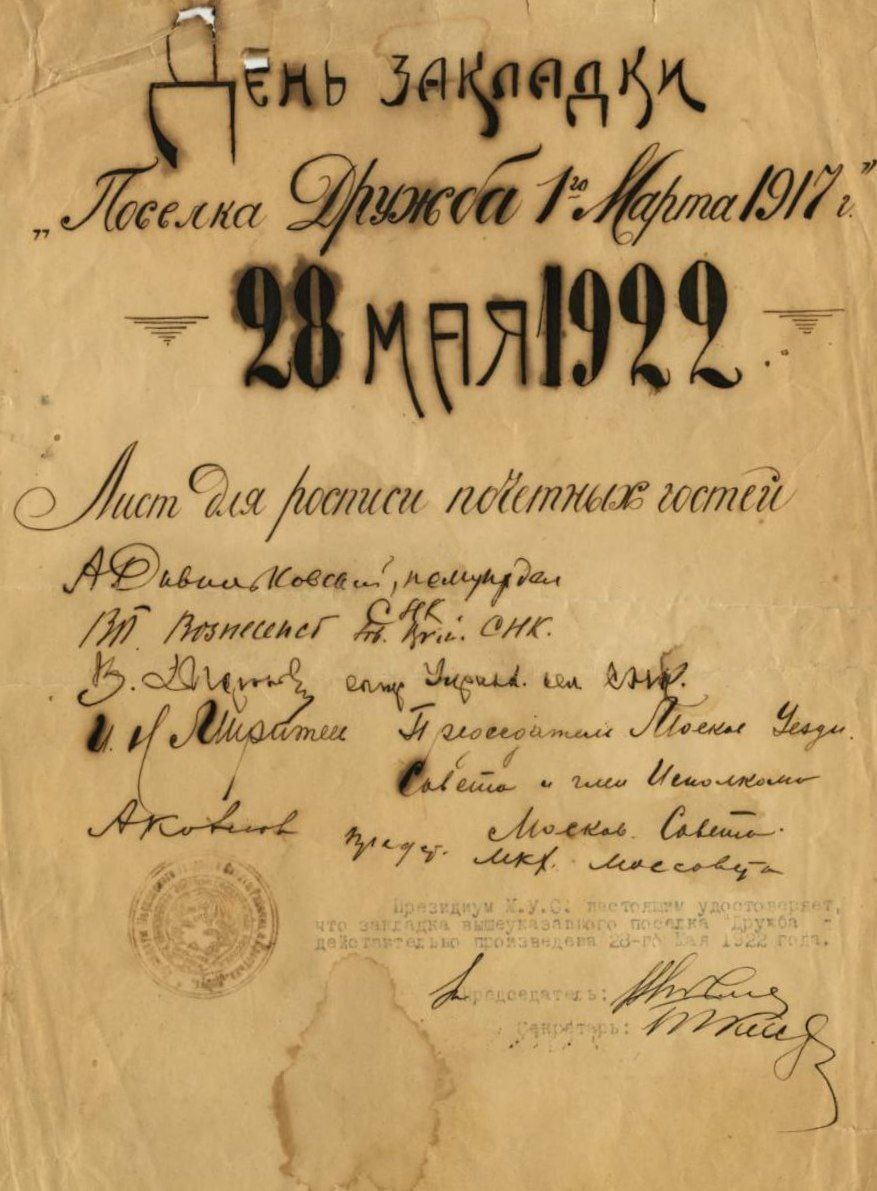 День закладки
„Поселка Дружба 1го Марта 1917 г."
28 мая 1922
Лист для росписи почетных гостей
А Дивильковский,
ВП Вознесенс СНК СНК.
В.
И. Председатель Москов Уездн.
Совета и член Исполкома
Москов. Совета.
А Ковлов предс. МКХ. Моссовета
Президиум М.У.С. настоящим удостоверяет,
что закладка вышеуказанного поселка "Дружба"-
действительно произведена 28-го Мая 1922 года.
Председатель:
Секретарь: